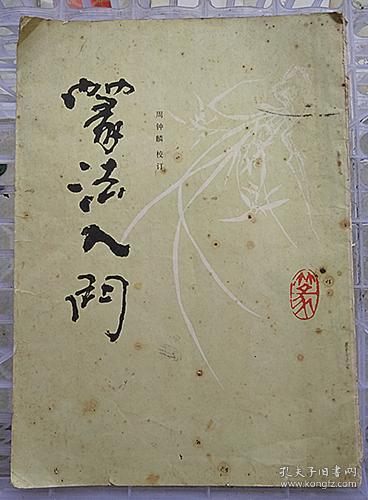 篆法入门
周钟麟 校订
篆
孔夫子旧书网
www.kongfz.com